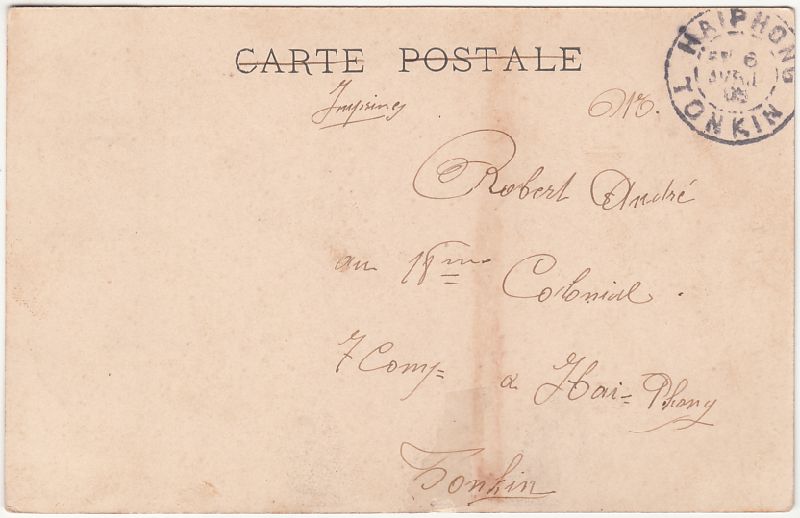 CARTE POSTALE
HAIPHONG
6
AVRIL
TONKIN
Imprimés
Mr.
Robert André
au 18me
Colonial.
7 Comp=
à Hai=Phong
Tonkin